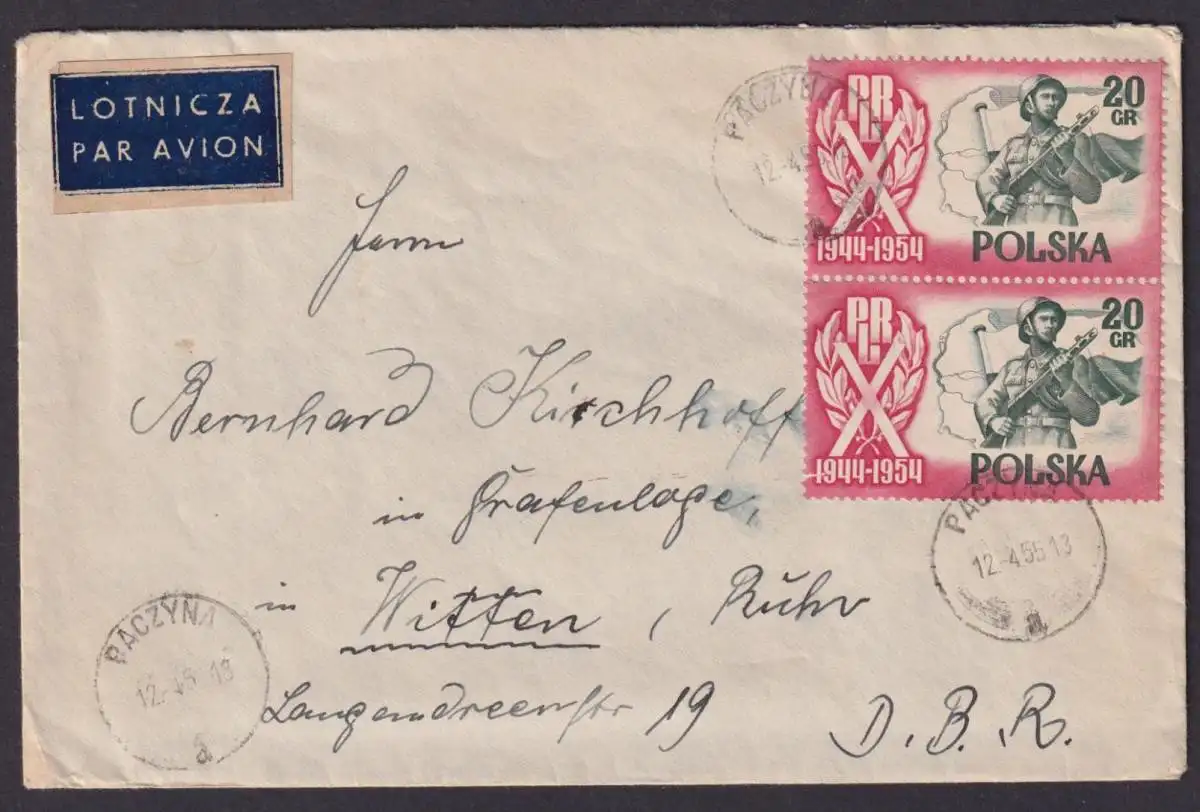 LOTNICZA
PAR AVION
PACZYNA
12.-4.5
a
PRL
X
1944-1954
20
GR
POLSKA
PRL
X
1944-1954
20
GR
POLSKA
Herrn
Bernhard Kirchhoff
in Grafenloge,
in Witten, Ruhr
Langendreerstr 19
D.B.R.
PACZYNA
12.-4.55 13
a
PACZYNA
12.-4.5 13
a